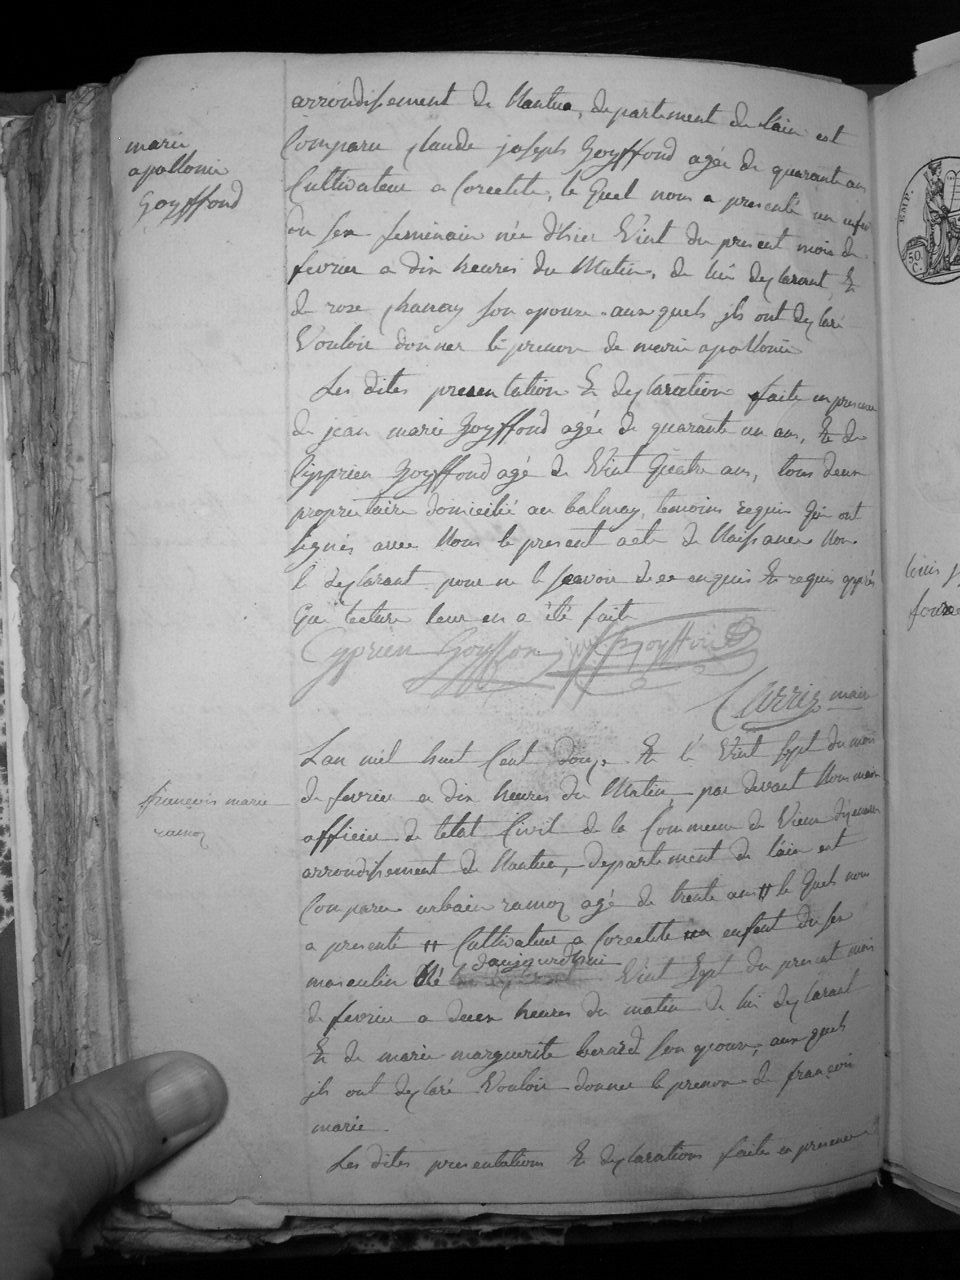 marie
apollonie
Goyffond
arrondissement de Nantua, departement de l'ain est
Comparu claude joseph Goyffond agée de quarante ans
Cultivateur a Corcelile, le quel nous a presenté un enfan
du sex feminain née d'hier Vint du present mois de
fevrier a dix heures du Matin, de lui declarant, &
de rose chanay son epouse auxquels jls ont declaré
Vouloir donner le prenon de marie apollonie
Les dites presentation & declaration faite en presence
de jean marie Goyffond agée de quarante un ans, & de
Cipprien Goyffond agé de Vint Quatre ans, tous deux
proprietaire domicilié au balmay, temoins requis Qui ont
signés avec Nous le present acte de Naissance Non
le declarant pour ne le scavoir de ce enquis & requis apprés
Que lecture leur en a été faite
Cyprien Goyffon jm Goyffon
Carrier maire
françois marie
ramoz
Lan mil huit Cent douze & le Vint sept du mois
de fevrier a dix heures du Matin, par devant Nous maire
officier de letat Civil de la Commune de Vieu d'izenave
arrondissement de Nantua, departement de l'ain est
Comparu urbain ramoz agé de trente ans # le quel nous
a presenté # Cultivateur a Corcelile un enfant du sex
masculin Né daujourdhui Vint sept du present mois
de fevrier a deux heures du matin de lui declarant
& de marie marguerite berard son epouse, aux quels
jls ont declaré Vouloir donner le prenon de françois
marie
Les dites presentations & declarations faites en presence
EMP.
50
C.
louis j
foure